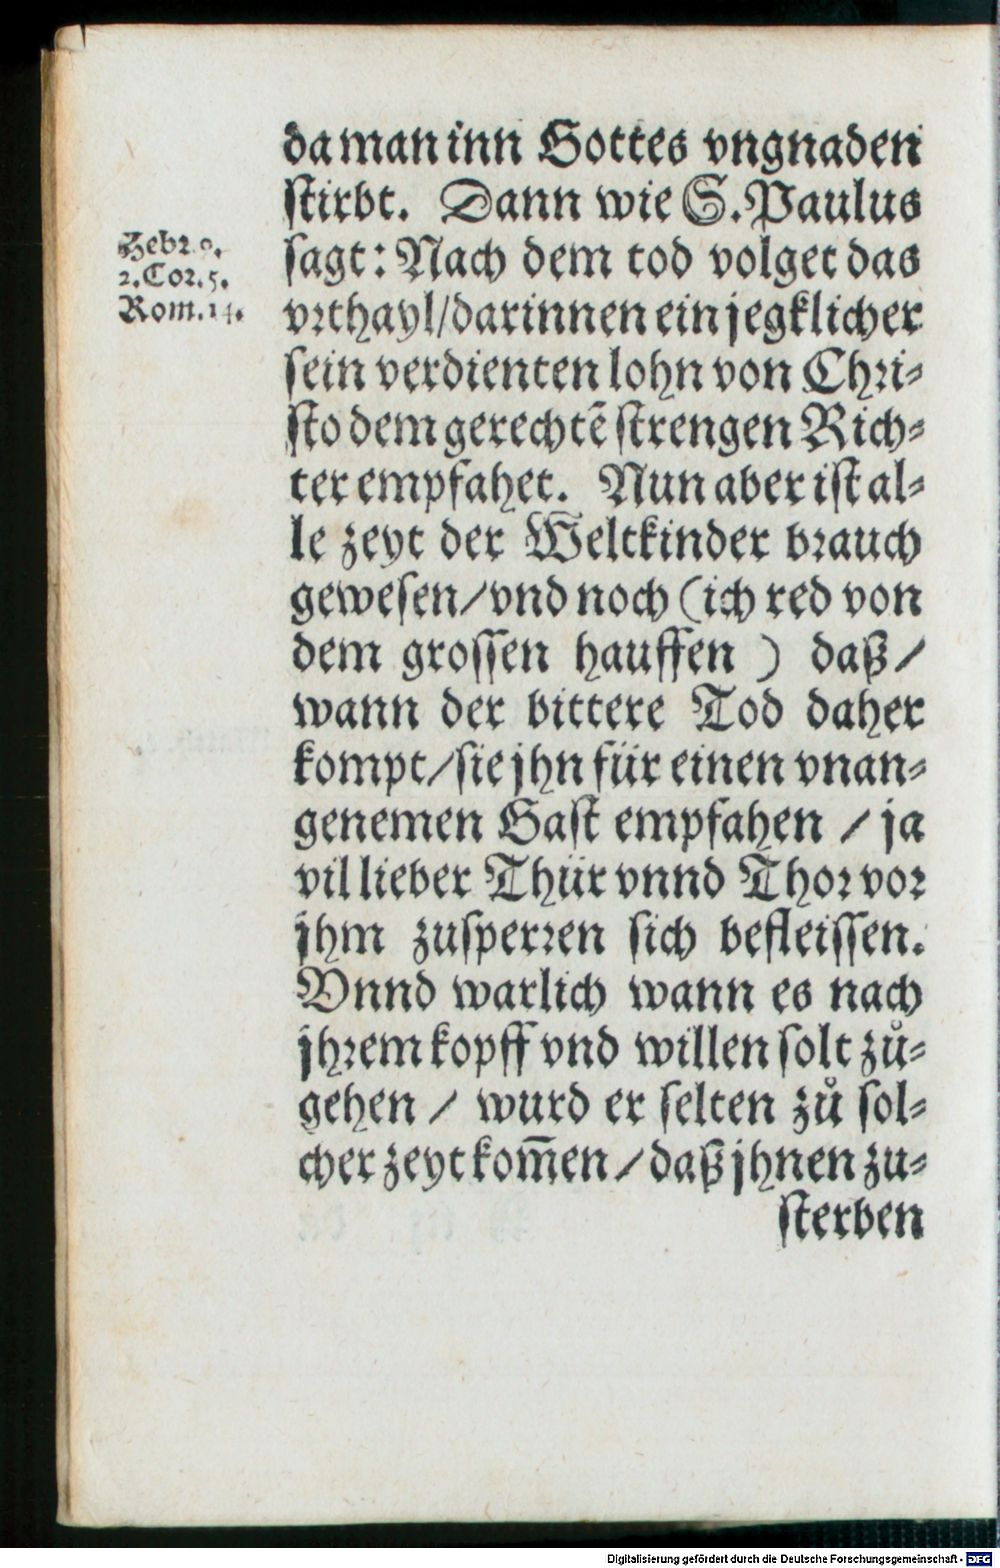 da man inn Gottes vngnaden
stirbt. Dann wie S. Paulus
sagt: Nach dem tod volget das
vrthayl/darinnen ein jegklicher
sein verdienten lohn von Chri-
sto dem gerechtẽ strengen Rich-
ter empfahet. Nun aber ist al-
le zeyt der Weltkinder brauch
gewesen/vnd noch (ich red von
dem grossen hauffen) daß/
wann der bittere Tod daher
kompt/sie jhn für einen vnan-
genemen Gast empfahen / ja
vil lieber Thür vnnd Thor vor
jhm zusperren sich befleissen.
Vnnd warlich wann es nach
jhrem kopff vnd willen solt zů-
gehen / wurd er selten zů sol-
cher zeyt kom̃en/daß jhnen zu-
sterben
Hebr. 9.
2. Cor. 5.
Rom. 14.
Digitalisierung gefördert durch die Deutsche Forschungsgemeinschaft - DFG